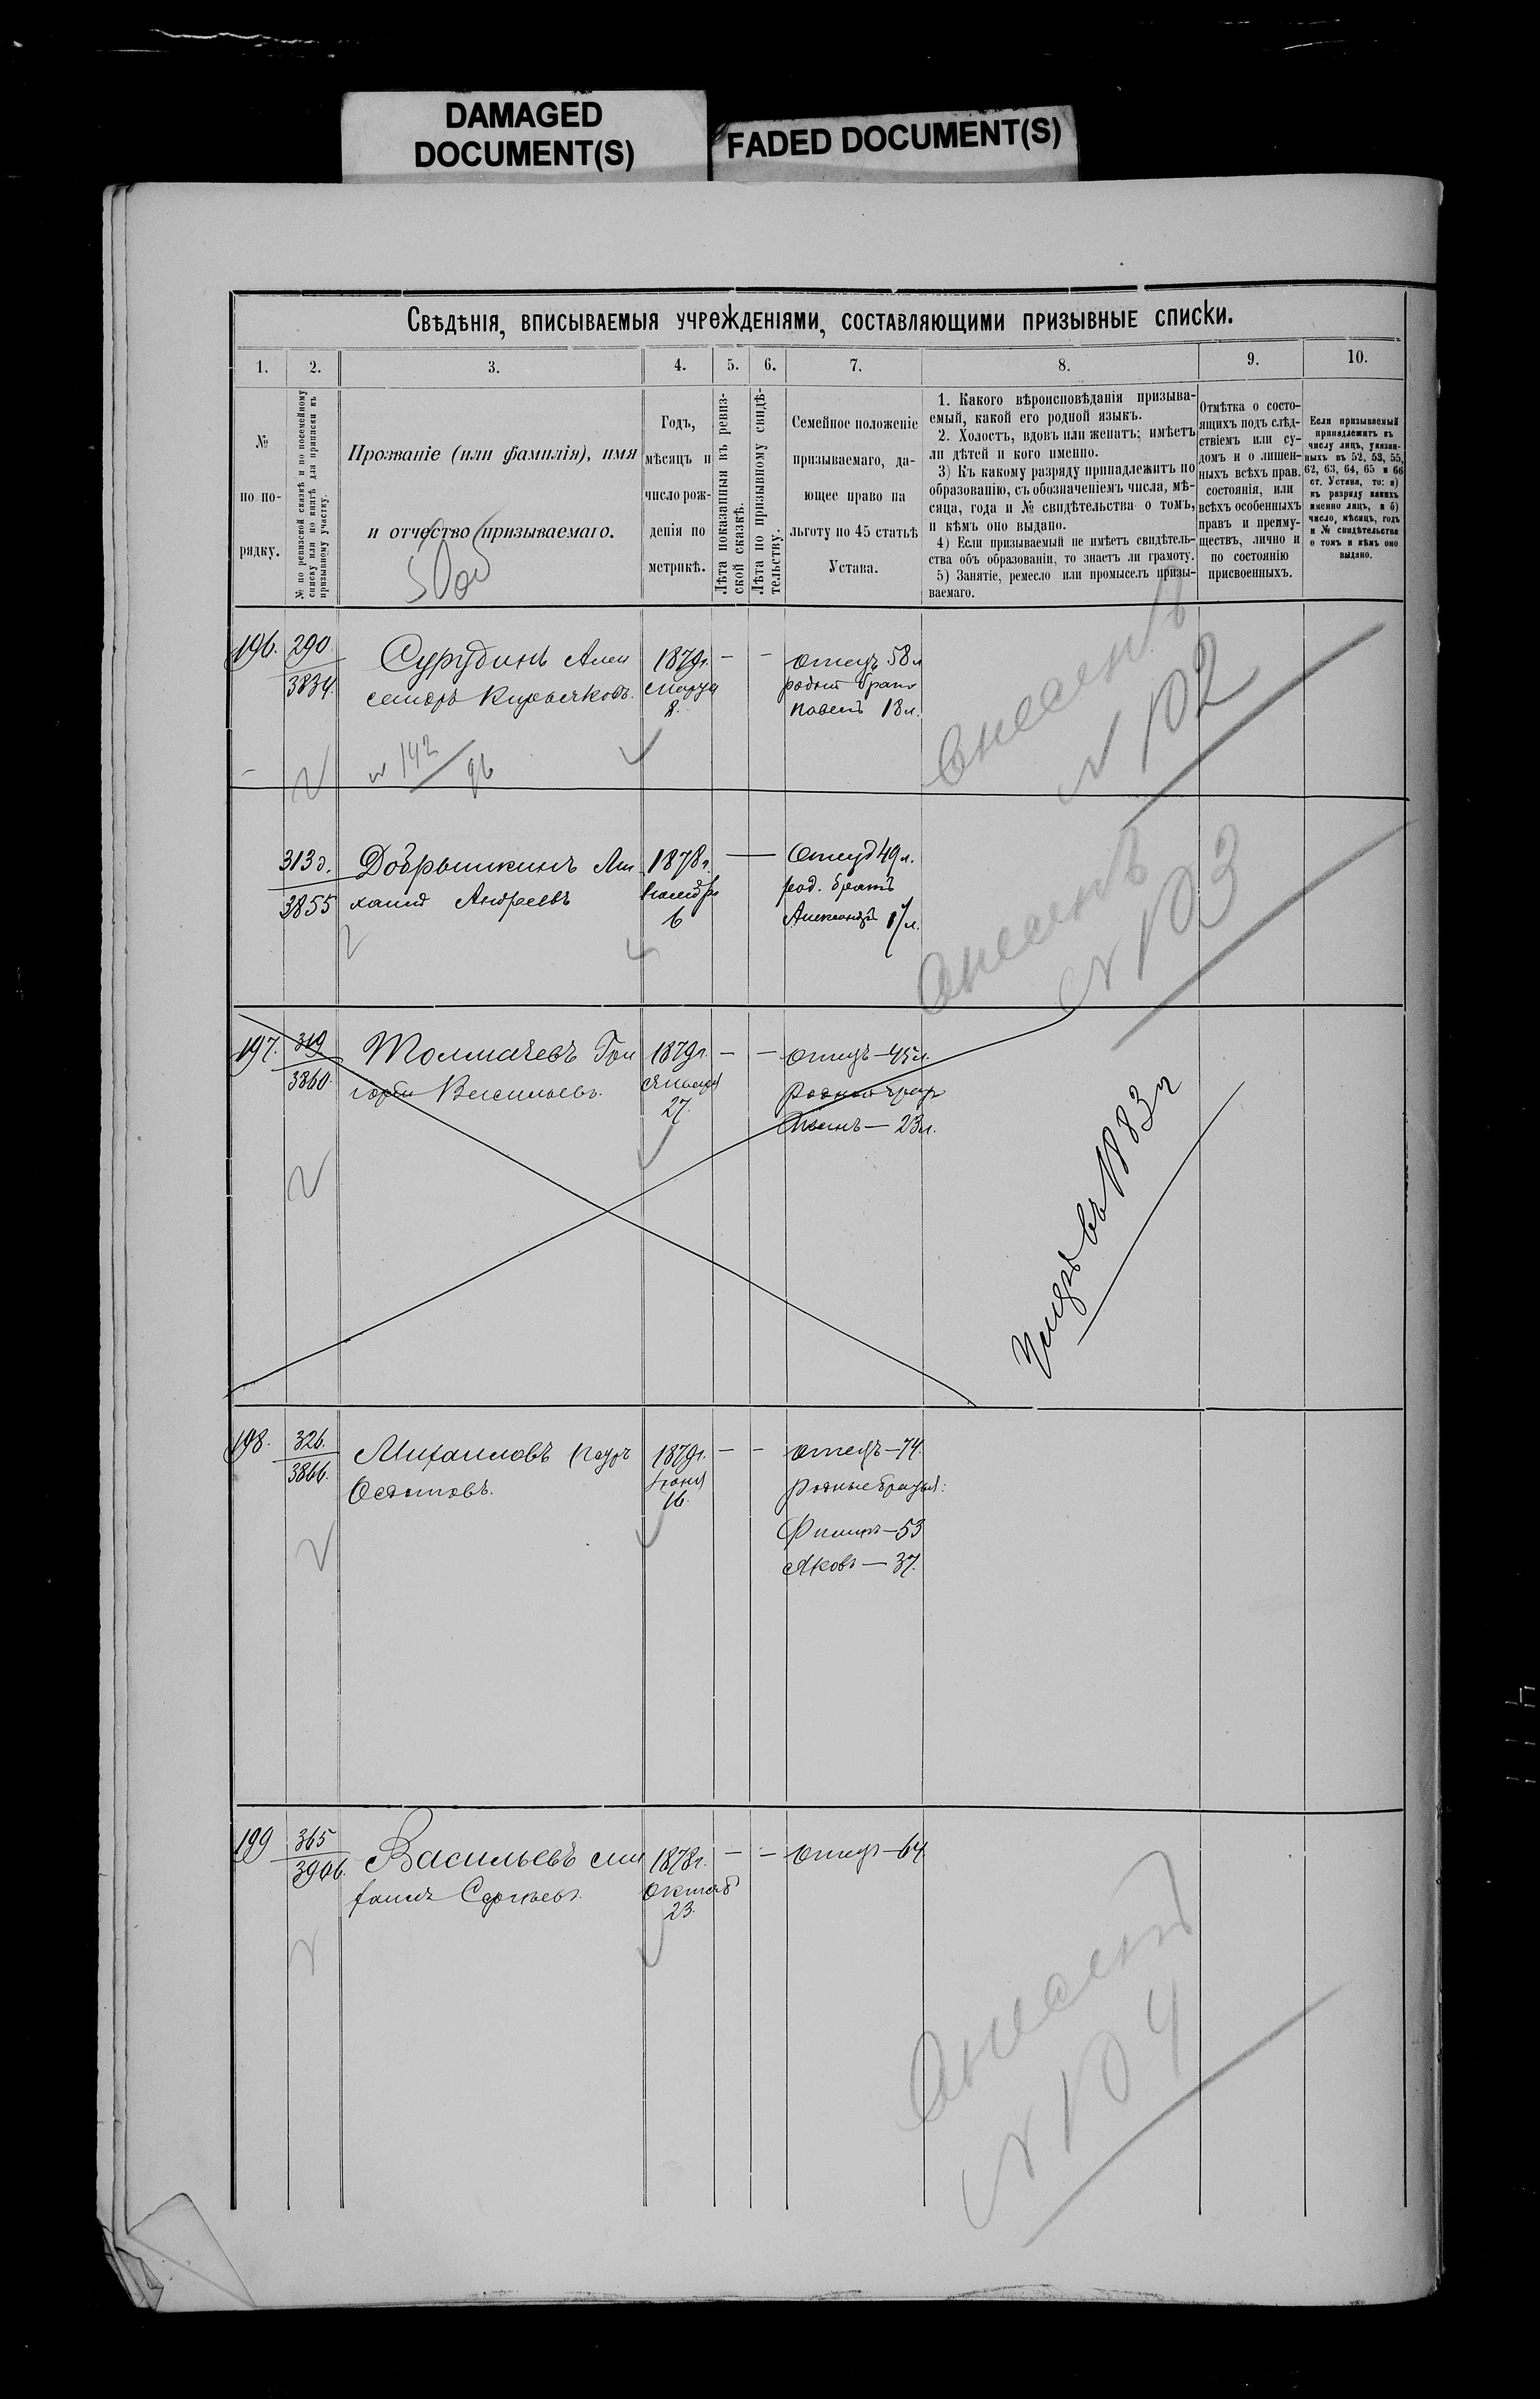 DAMAGED
DOCUMENT(S)
FADED DOCUMENT(S)
Свѣдѣнія, вписываемыя учрежденіями, составляющими призывные списки.
1.
2.
3.
4.
5.
6.
7.
8.
9.
10.
№
по по-
рядку.
№ по ревизской сказкѣ и по посемейному
списку или по книгѣ для приписки къ
призывному участку.
Прозваніе (или фамилія), имя
и отчество призываемаго.
Годъ,
мѣсяцъ и
число рож-
денія по
метрикѣ.
Лѣта показанныя въ ревиз-
ской сказкѣ.
Лѣта по призывному свидѣ-
тельству.
Семейное положеніе
призываемаго, да-
ющее право на
льготу по 45 статьѣ
Устава.
1. Какого вѣроисповѣданія призыва-
емый, какой его родной языкъ.
2. Холостъ, вдовъ или женатъ; имѣетъ
ли дѣтей и кого именно.
3) Къ какому разряду принадлежитъ по
образованію, съ обозначеніемъ числа, мѣ-
сяца, года и № свидѣтельства о томъ,
и кѣмъ оно выдано.
4) Если призываемый не имѣетъ свидѣтель-
ства объ образованіи, то знаетъ ли грамоту.
5) Занятіе, ремесло или промыселъ призы-
ваемаго.
Отмѣтка о состо-
ящихъ подъ слѣд-
ствіемъ или су-
домъ и о лишен-
ныхъ всѣхъ прав.
состоянія, или
всѣхъ особенныхъ
правъ и преиму-
ществъ, лично и
по состоянію
присвоенныхъ.
Если призываемый
принадлежитъ къ
числу лицъ, указан-
ныхъ въ 52, 53, 55,
62, 63, 64, 65 и 66
ст. Устава, то: а)
къ разряду какихъ
именно лицъ, и б)
число, мѣсяцъ, годъ
и № свидѣтельства
о томъ и кѣмъ оно
выдано.
196.
290
3834.
Сурудинъ Алек
8.
1879г.
Марта
отецъ 58л
родной братъ
Павелъ 18л.
№ 142
96
внесенъ
№ 102
313д.
3855
Добрышкинъ Ми
хаилъ Андреевъ
1878г.
Ноября
6
Отецъ 49л.
род. братъ
Александръ 17л.
внесенъ
№ 103
197.
319
3860.
Толмачевъ Гри
горій Васильевъ.
1879г.
Января
27.
отецъ—45л.
родной братъ
Иванъ—23л.
въ 1883г
198.
326.
3866.
Михаиловъ Петръ
Осиповъ.
1879г.
Іюня
16.
отецъ—74.
родные братья:
Филипъ—53
Яковъ—37.
199
365
3906.
Васильевъ Ми
хаилъ Сергѣевъ.
1878г.
Октяб
23.
отецъ—64
внесенъ
№ 104